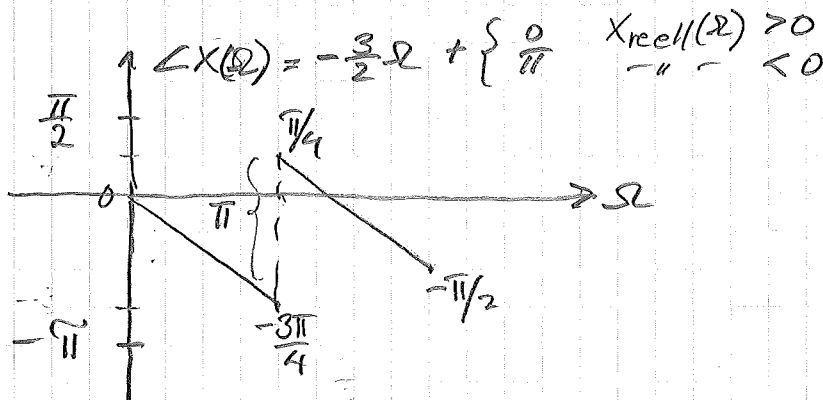 ∠X(Ω) = -3/2 Ω + { 0 X reell(Ω) > 0
π -"- < 0
π/2
π/4
0
π
Ω
-π/2
-3π/4
-π